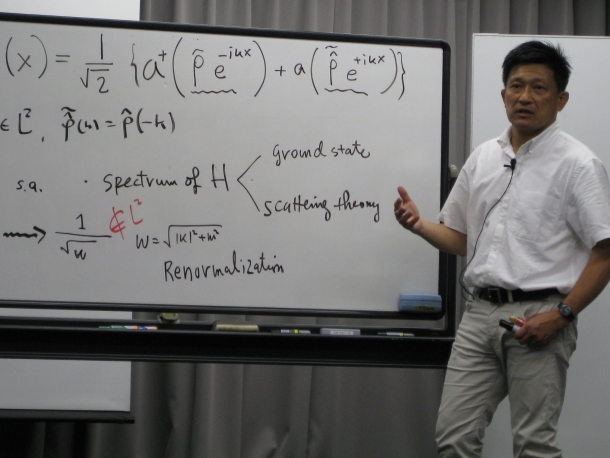 (x) = 1/√2 {a⁺(ρ̃ e^{-ikx}) + a(ρ̃̃ e^{+ikx})}
∈ L², ρ̃̃(k) = ρ̂(-k)
s.a. · spectrum of H < ground state
scattering theory
⟶ 1/√w ∉ L² W = √|k|²+m²
Renormalization